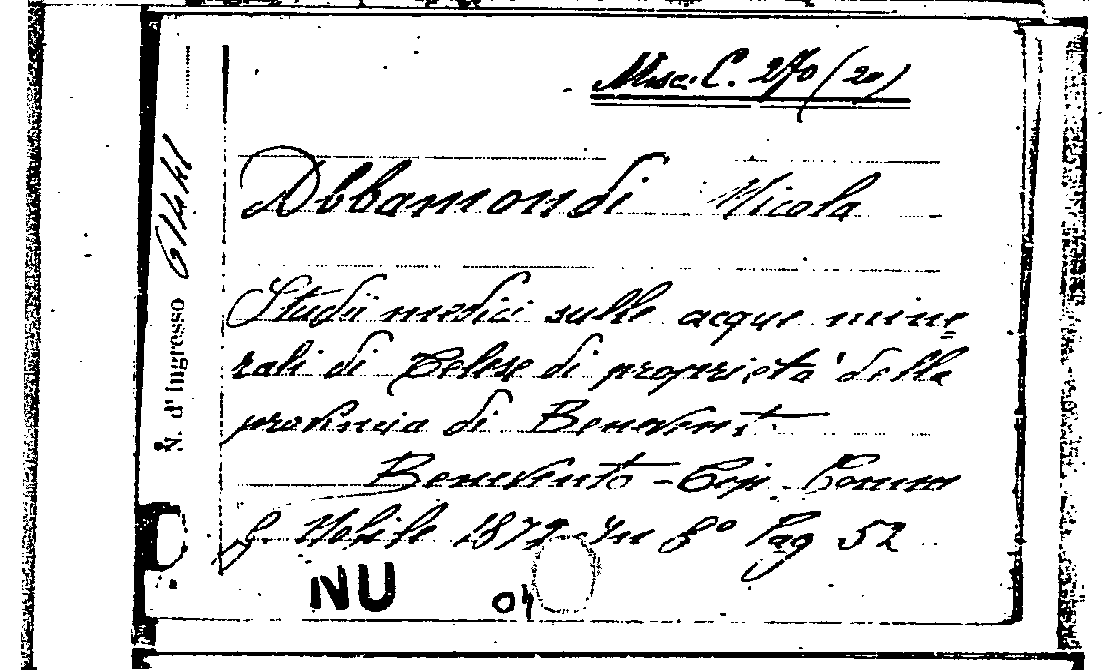 Misc. C. 270 (20)
Abbamondi Nicola
Studii medici sulle acque mine
rali di Telese di proprietà della
provincia di Benevent.
Benevento - Tip.
G. Nobile 1872 In 8° Pag 52
N. d'ingresso
NU
04